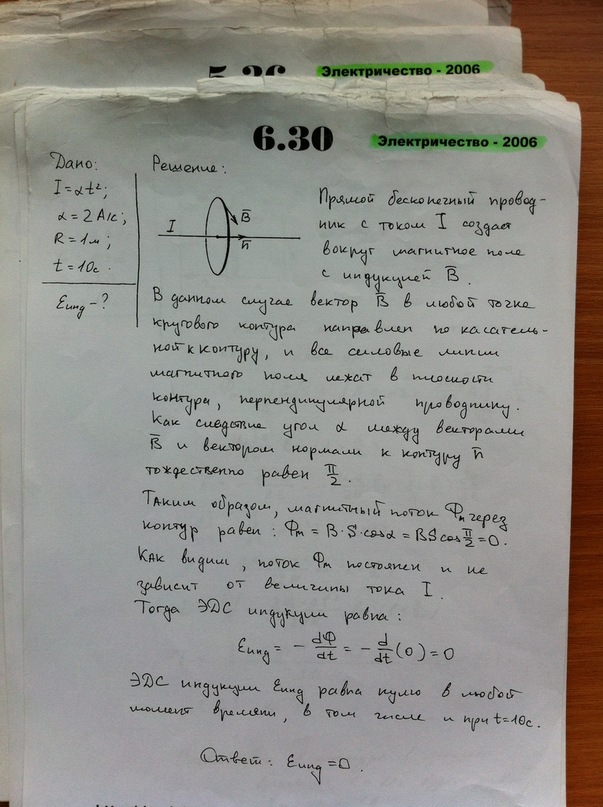 5.26 Электричество - 2006
6.30 Электричество - 2006
Дано:
I = αt²;
α = 2 А/с;
R = 1м;
t = 10с.
Eинд - ?
Решение:
I
B̅
n̅
Прямой бесконечный провод-
ник с током I создает
вокруг магнитное поле
с индукцией B̅.
В данном случае вектор B̅ в любой точке
кругового контура направлен по касатель-
ной к контуру, и все силовые линии
магнитного поля лежат в плоскости
контура, перпендикулярной проводнику.
Как следствие угол α между векторами
B̅ и вектором нормали к контуру n̅
тождественно равен π/2.
Таким образом, магнитный поток Φm через
контур равен: Φm = B·S·cosα = BS cos π/2 = 0.
Как видим, поток Φm постоянен и не
зависит от величины тока I.
Тогда ЭДС индукции равна:
Eинд = - dΦ/dt = - d/dt (0) = 0
ЭДС индукции Eинд равна нулю в любой
момент времени, в том числе и при t=10с.
Ответ: Eинд = 0.